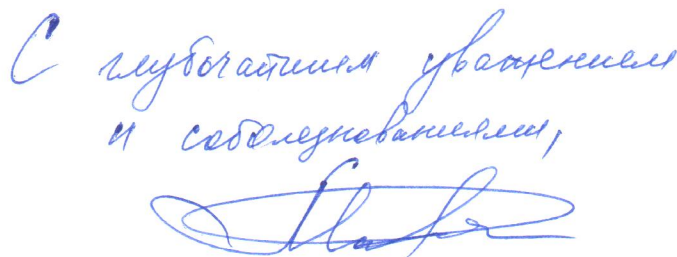 С глубочайшим уважением
и соболезнованиями,